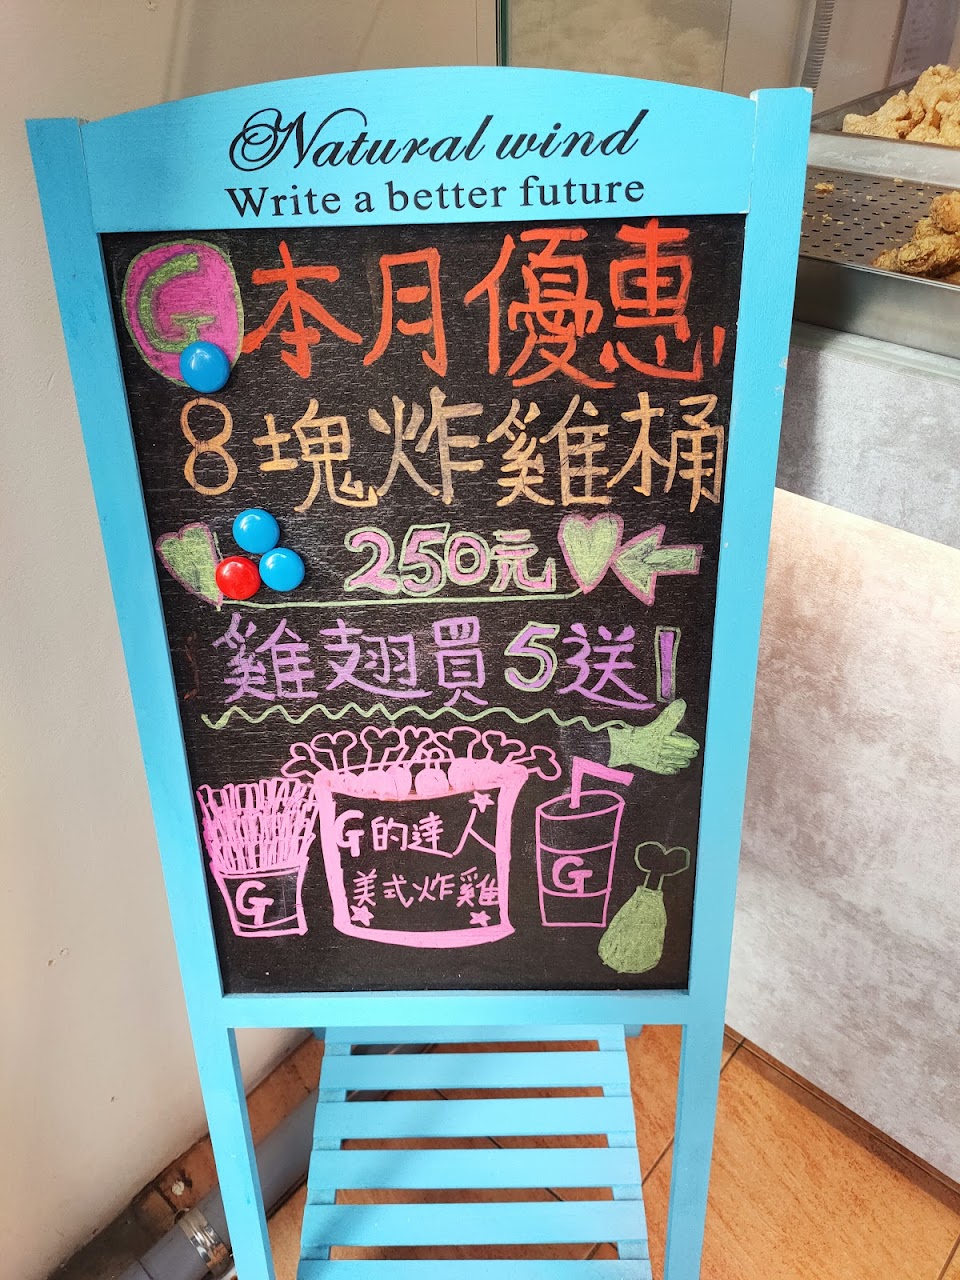 Natural wind
Write a better future
G 本月優惠
8塊炸雞桶
250元
雞翅買5送1
G的達人
美式炸雞
G
G